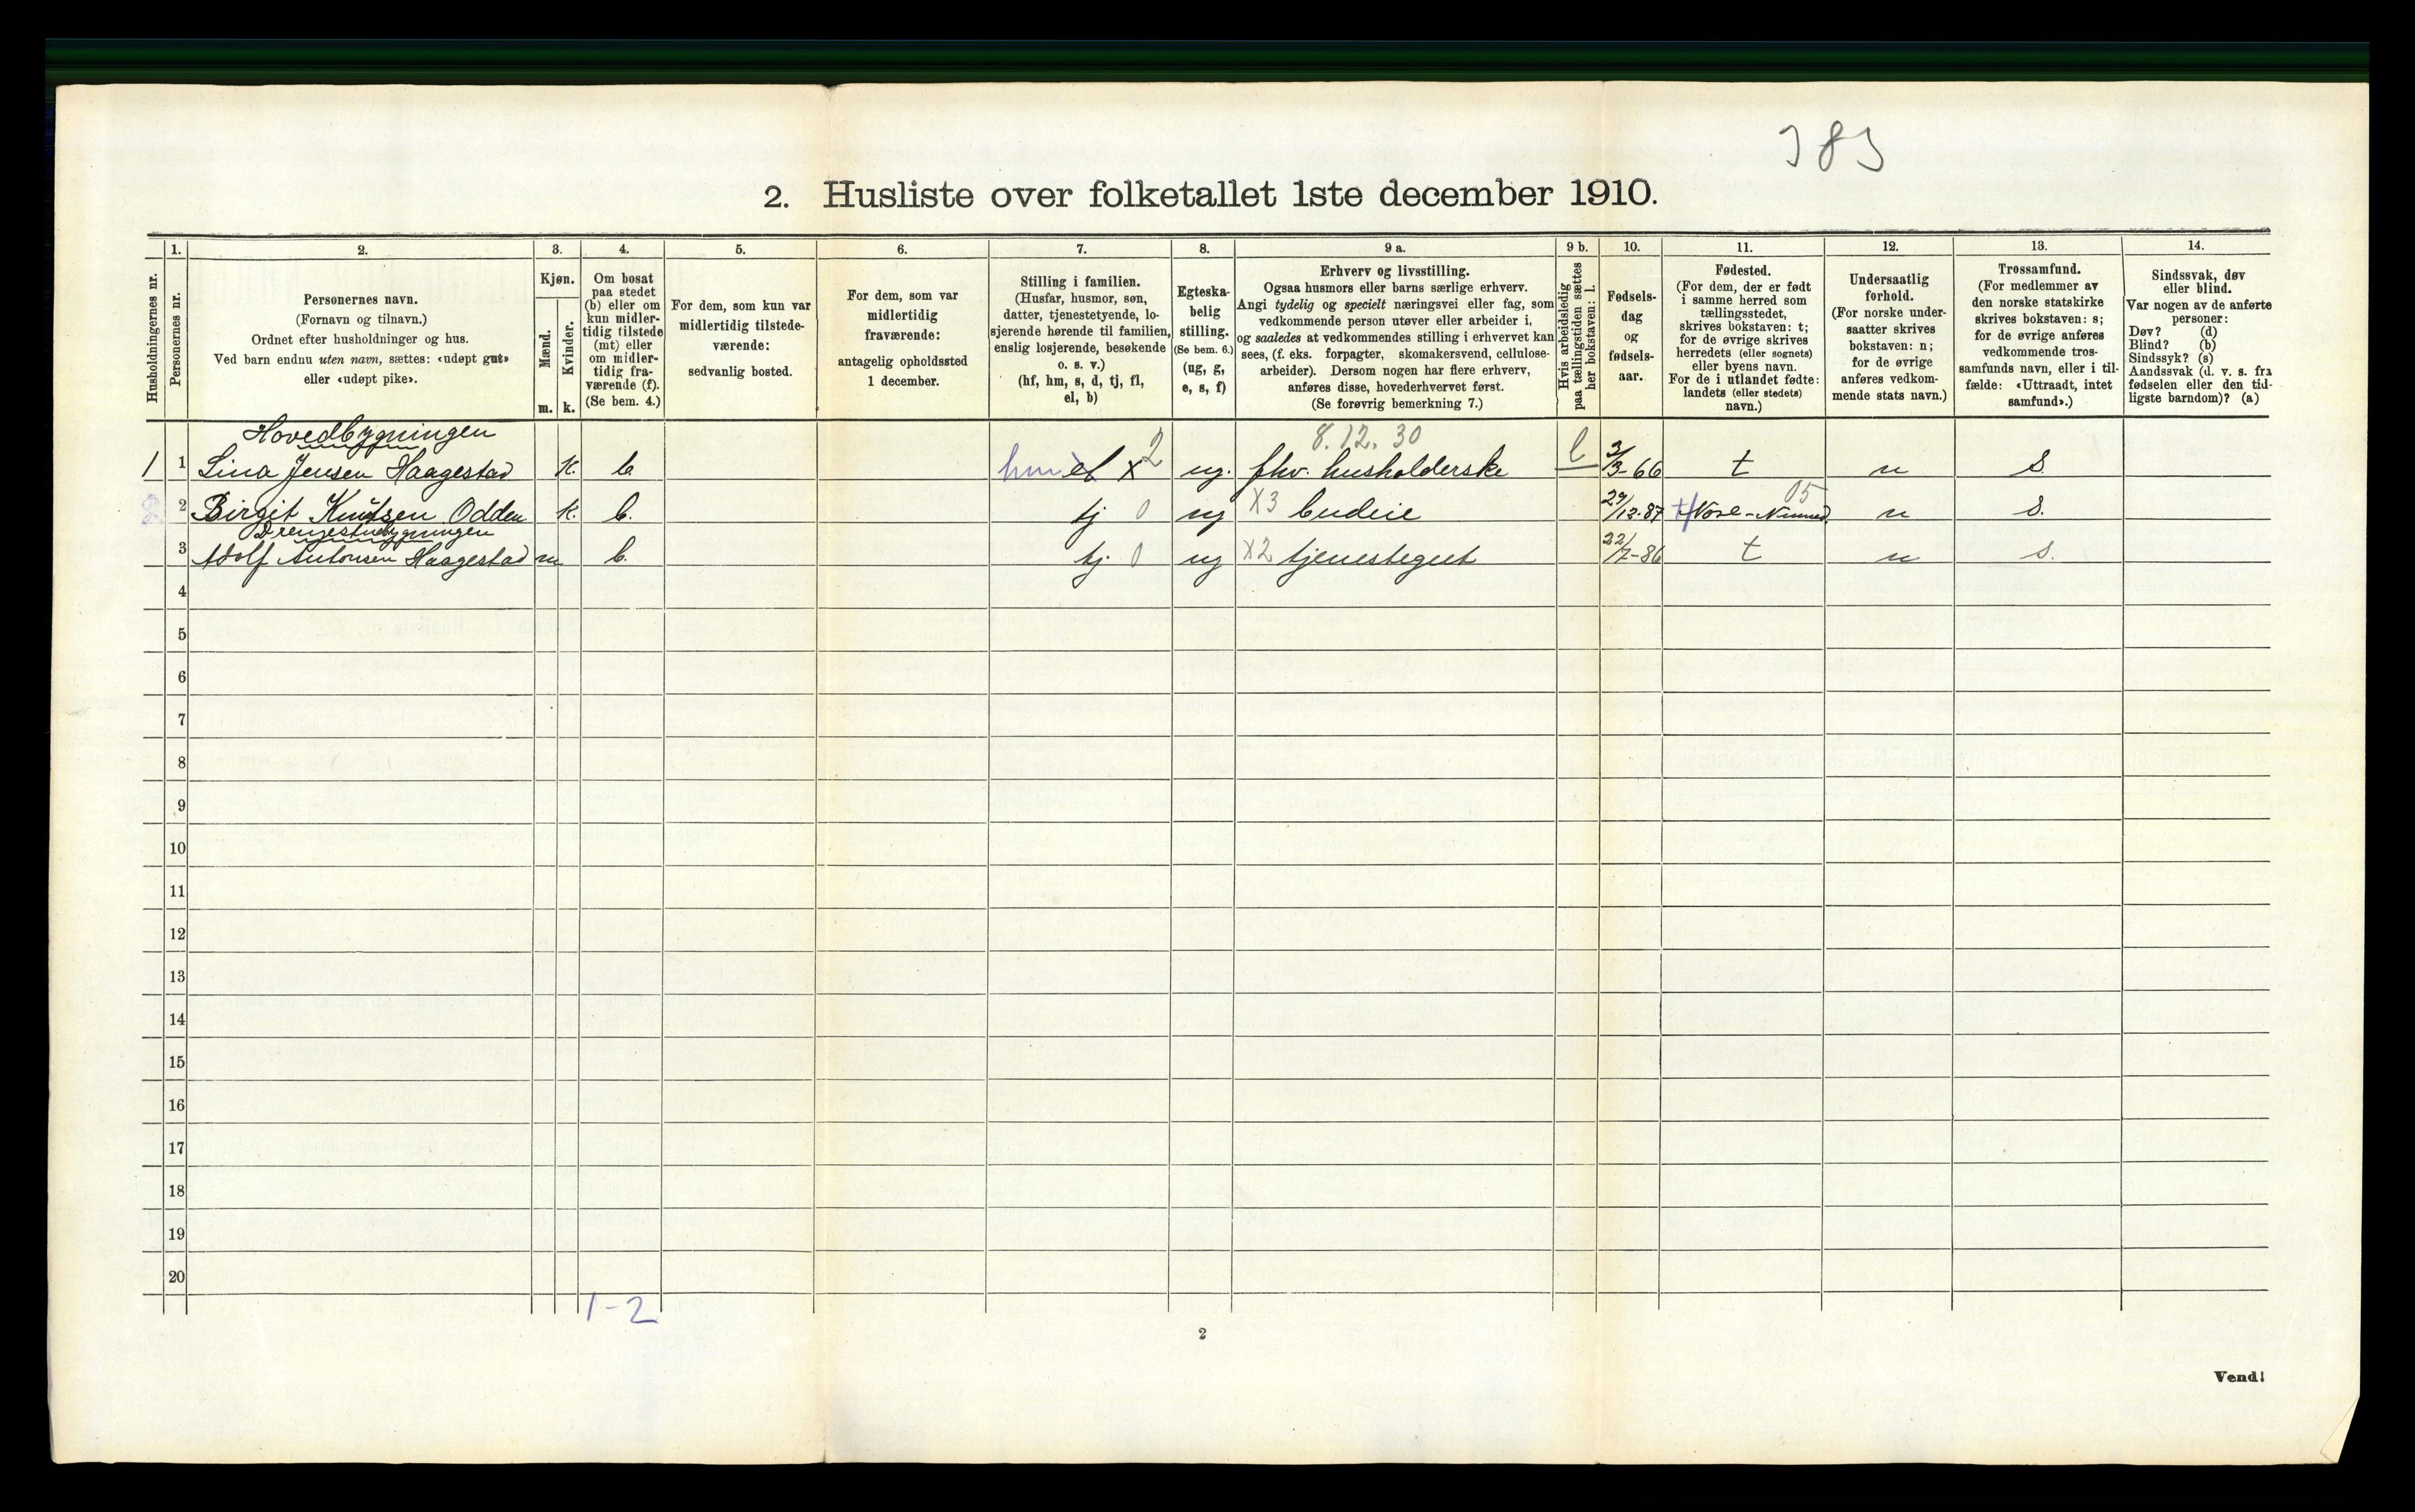 383
2. Husliste over folketallet 1ste december 1910.
Husholdningernes nr.
1.
Personernes nr.
2.
Personernes navn.
(Fornavn og tilnavn.)
Ordnet efter husholdninger og hus.
Ved barn endnu uten navn, sættes: «udøpt gut»
eller «udøpt pike».
3.
Kjøn.
Mænd.
Kvinder.
m. k.
4.
Om bosat
paa stedet
(b) eller om
kun midler-
tidig tilstede
(mt) eller
om midler-
tidig fra-
værende (f).
(Se bem. 4.)
5.
For dem, som kun var
midlertidig tilstede-
værende:
sedvanlig bosted.
6.
For dem, som var
midlertidig
fraværende:
antagelig opholdssted
1 december.
7.
Stilling i familien.
(Husfar, husmor, søn,
datter, tjenestetyende, lo-
sjerende hørende til familien,
enslig losjerende, besøkende
o. s. v.)
(hf, hm, s, d, tj, fl,
el, b)
8.
Egteska-
belig
stilling.
(Se bem. 6.)
(ug, g,
e, s, f)
9 a.
Erhverv og livsstilling.
Ogsaa husmors eller barns særlige erhverv.
Angi tydelig og specielt næringsvei eller fag, som
vedkommende person utøver eller arbeider i,
og saaledes at vedkommendes stilling i erhvervet kan
sees, (f. eks. forpagter, skomakersvend, cellulose-
arbeider). Dersom nogen har flere erhverv,
anføres disse, hovederhvervet først.
(Se forøvrig bemerkning 7.)
9 b.
Hvis arbeidsledig
paa tællingstiden sættes
her bokstaven: l.
10.
Fødsels-
dag
og
fødsels-
aar.
11.
Fødested.
(For dem, der er født
i samme herred som
tællingsstedet,
skrives bokstaven: t;
for de øvrige skrives
herredets (eller sognets)
eller byens navn.
For de i utlandet fødte:
landets (eller stedets)
navn.)
12.
Undersaatlig
forhold.
(For norske under-
saatter skrives
bokstaven: n;
for de øvrige
anføres vedkom-
mende stats navn.)
13.
Trossamfund.
(For medlemmer av
den norske statskirke
skrives bokstaven: s;
for de øvrige anføres
vedkommende tros-
samfunds navn, eller i til-
fælde: «Uttraadt, intet
samfund».)
14.
Sindssvak, døv
eller blind.
Var nogen av de anførte
personer:
Døv? (d)
Blind? (b)
Sindssyk? (s)
Aandssvak (d. v. s. fra
fødselen eller den tid-
ligste barndom)? (a)
Hovedbygningen 8.12.30
1 1 Lina Jensen Haagestad k. b. hm el x 2 ug. fhv. husholderske l 3/3-66 t n s.
2 Birgit Knutsen Odden k. b. tj 0 ug x3 budeie 29/12-87 t/Nore-Numed. 05 n s.
Drengestubygningen
3 Adolf Antonsen Haagestad m b. tj. 0 ug x2 tjenestegut 22/7-86 t n s.
4
5
6
7
8
9
10
11
12
13
14
15
16
17
18
19
20
1-2
2
Vend!